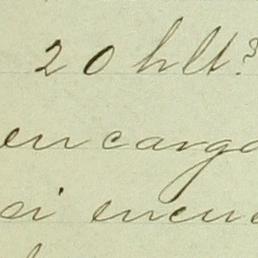 20 hlt.s
encarga
si encue